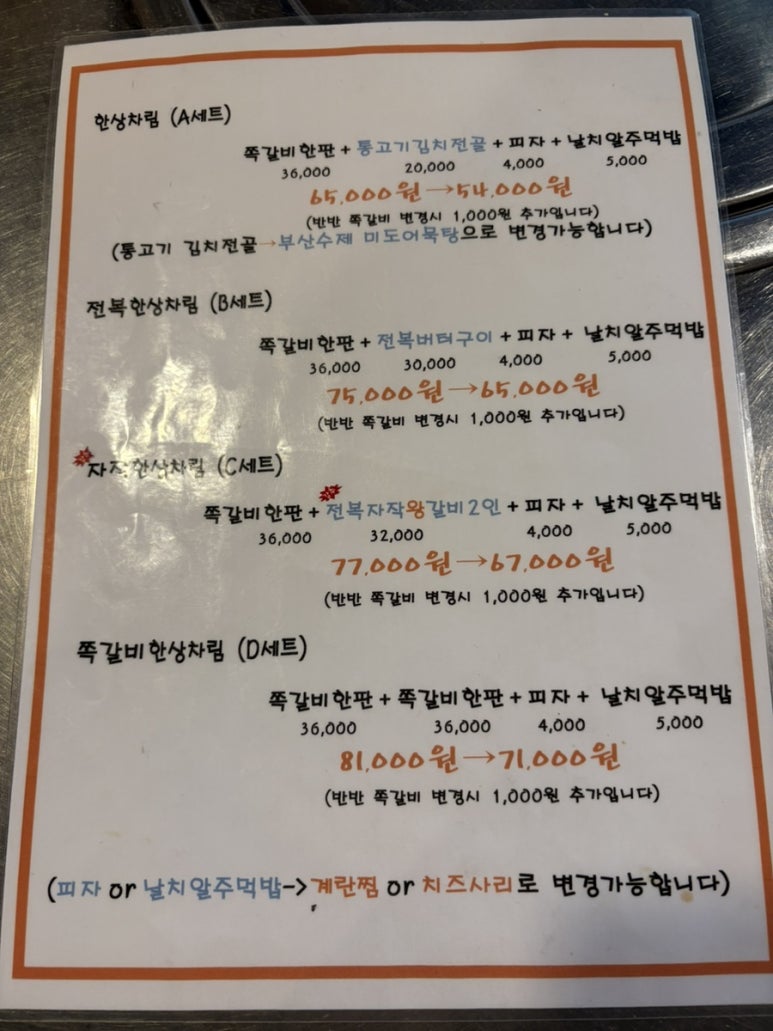 한상차림 (A세트)
쪽갈비한판 + 통고기김치전골 + 피자 + 날치알주먹밥
36,000 20,000 4,000 5,000
65,000원→54,000원
(반반 쪽갈비 변경시 1,000원 추가입니다)
(통고기 김치전골→부산수제 미도어묵탕으로 변경가능합니다)
전복한상차림 (B세트)
쪽갈비한판 + 전복버터구이 + 피자 + 날치알주먹밥
36,000 30,000 4,000 5,000
75,000원→65,000원
(반반 쪽갈비 변경시 1,000원 추가입니다)
자작한상차림 (C세트)
쪽갈비한판 + 전복자작왕갈비2인 + 피자 + 날치알주먹밥
36,000 32,000 4,000 5,000
77,000원→67,000원
(반반 쪽갈비 변경시 1,000원 추가입니다)
쪽갈비한상차림 (D세트)
쪽갈비한판 + 쪽갈비한판 + 피자 + 날치알주먹밥
36,000 36,000 4,000 5,000
81,000원→71,000원
(반반 쪽갈비 변경시 1,000원 추가입니다)
(피자 or 날치알주먹밥->계란찜 or 치즈사리로 변경가능합니다)